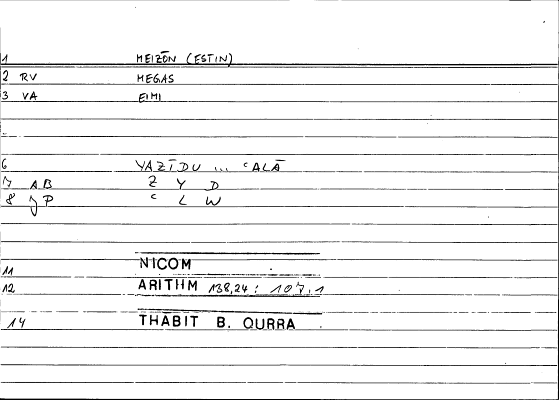 1 MEIZŌN (ESTIN)
2 RV MEGAS
3 VA EIMI
6 YAZĪDU ... ʿALĀ
7 AB Z Y D
8 JP ʿ L W
11 NICOM
12 ARITHM 138,24 : 107,1
14 THABIT B. QURRA